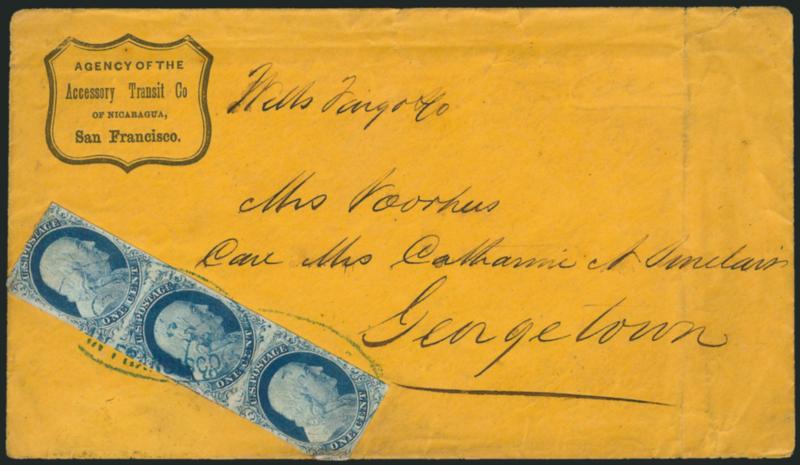 AGENCY OF THE
Accessory Transit Co
OF NICARAGUA,
San Francisco.
Wells Fargo & Co
Mrs Voorhies
Care Mrs Catharine N Sinclair
Georgetown
U.S. POSTAGE
ONE CENT
U.S. POSTAGE
ONE CENT
U.S. POSTAGE
ONE CENT